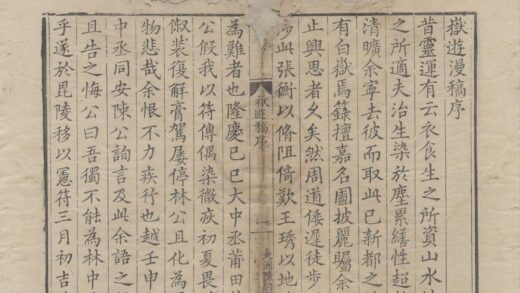 嶽遊漫稿序
昔靈運有云衣食生之所資山水性
之所適夫治生染於塵累繕性超於
清曠余寧去彼而取此已新都之
有白嶽焉籙檀嘉名圖披麗矚余
止興思者久矣然周道倭遲徒步
涉此張衡以脩阻倚歎王琇以地
嶽遊稿序
為難者也隆慶己巳大中丞莆田
公假我以符傳偶染微疾初夏畏
俶裝復解膏駕屢停林公且化為
物悲哉余恨不力疾行也越壬申
中丞同安陳公詢言及此余語之
且告之悔公曰吾獨不能為林中
乎遂於毘陵移以憲符三月初吉